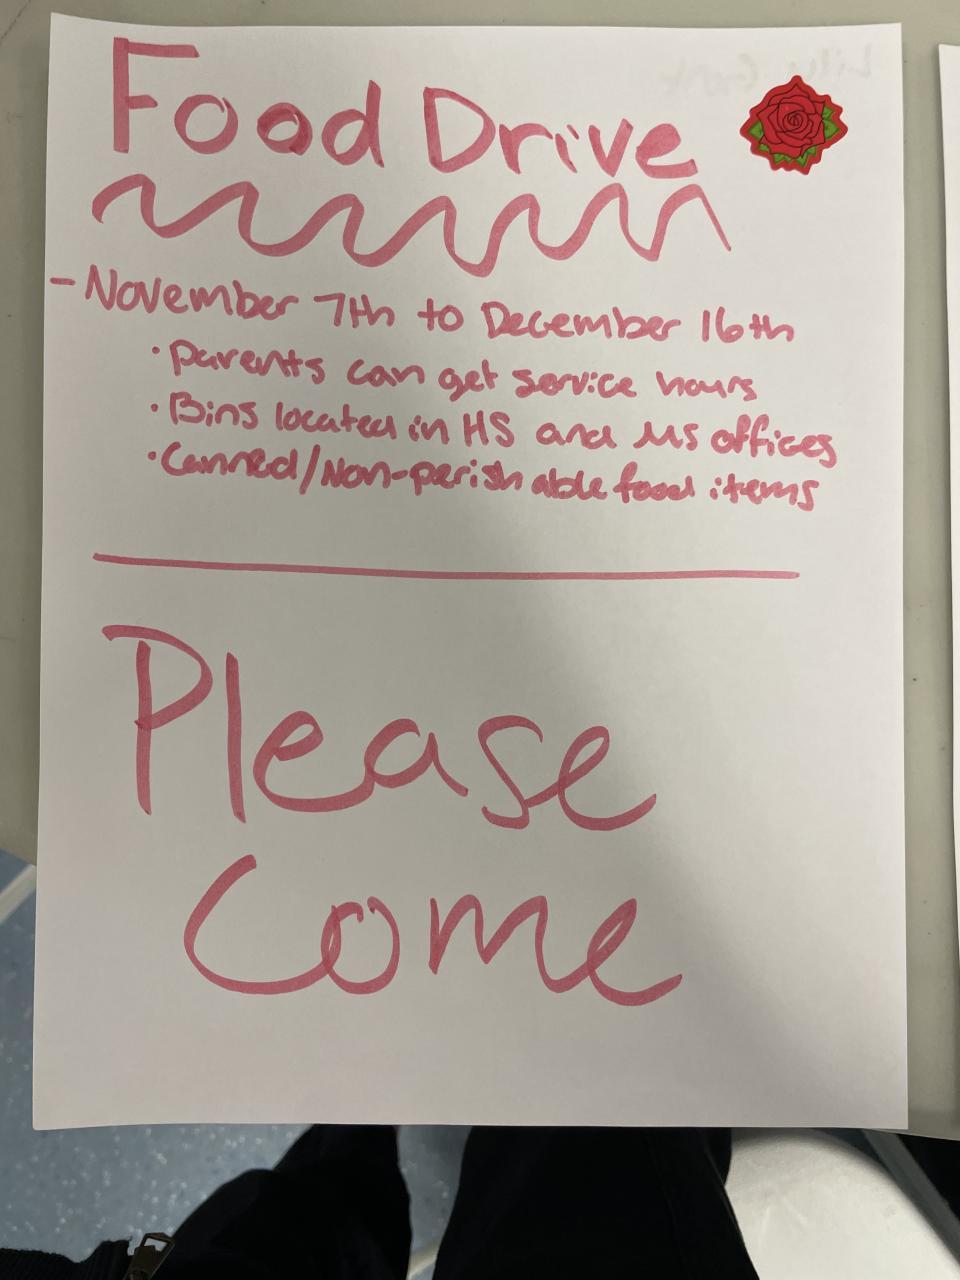 Food Drive
- November 7th to December 16th
• parents can get service hours
• Bins located in HS and MS offices
• Canned/Non-perishable food items
Please
Come